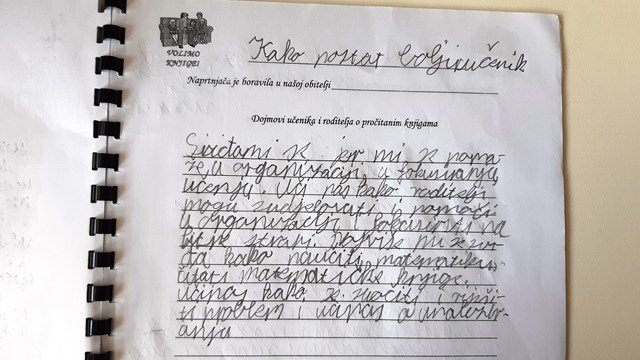 VOLIMO
KNJIGE!
Kako postat bolji učenik
Naprtnjača je boravila u našoj obitelji
Dojmovi učenika i roditelja o pročitanim knjigama
Sviđami se jer mi je poma-
že u organizaciji, u fokusiranju
učenju. Uči nas kako roditelji
mogu sudjelovati i pomoći
u organizaciji i fokusirati na
bitne stvari. Najviše mi se
kako naučiti matematiku i
čitati matematičke knjige.
Učinas kako se suočiti i riješi-
ti problem i učinas o
anju